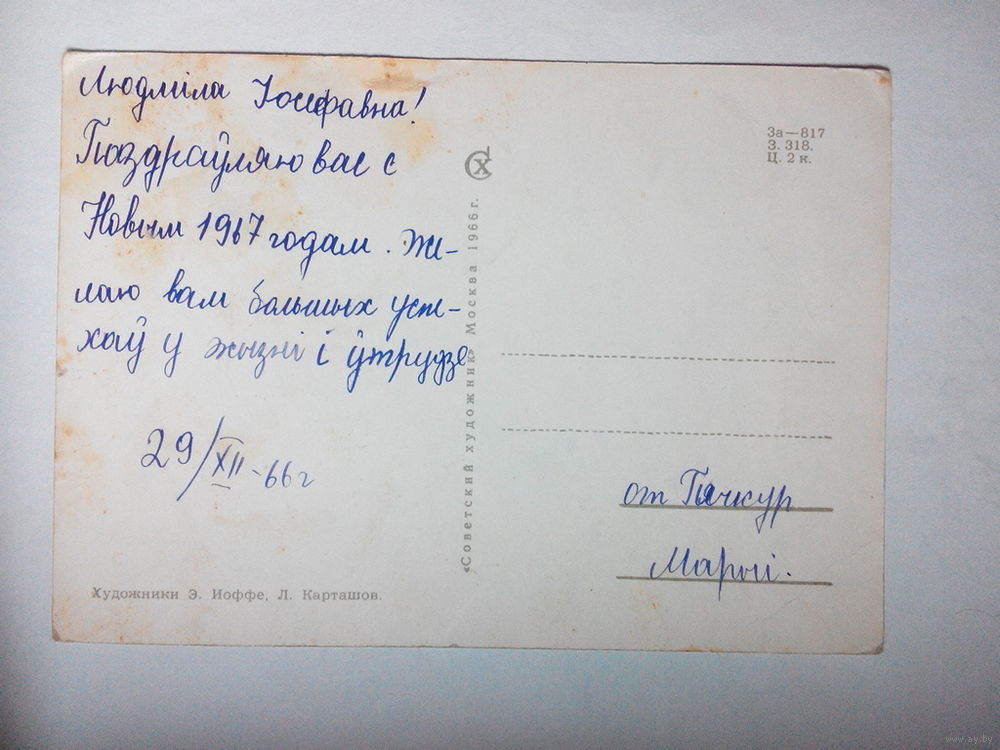 Людміла Іосефавна!
Паздраўляю вас с
Новым 1967 годам. Же-
лаю вам большых успе-
хаў у жызні і ў трудзе
29/XII-66 г
Художники Э. Иоффе, Л. Карташов.
«Советский художник» Москва 1966 г.
СХ
За—817
З. 318.
Ц. 2 к.
от Пячкур
Марыі.
www.ay.by